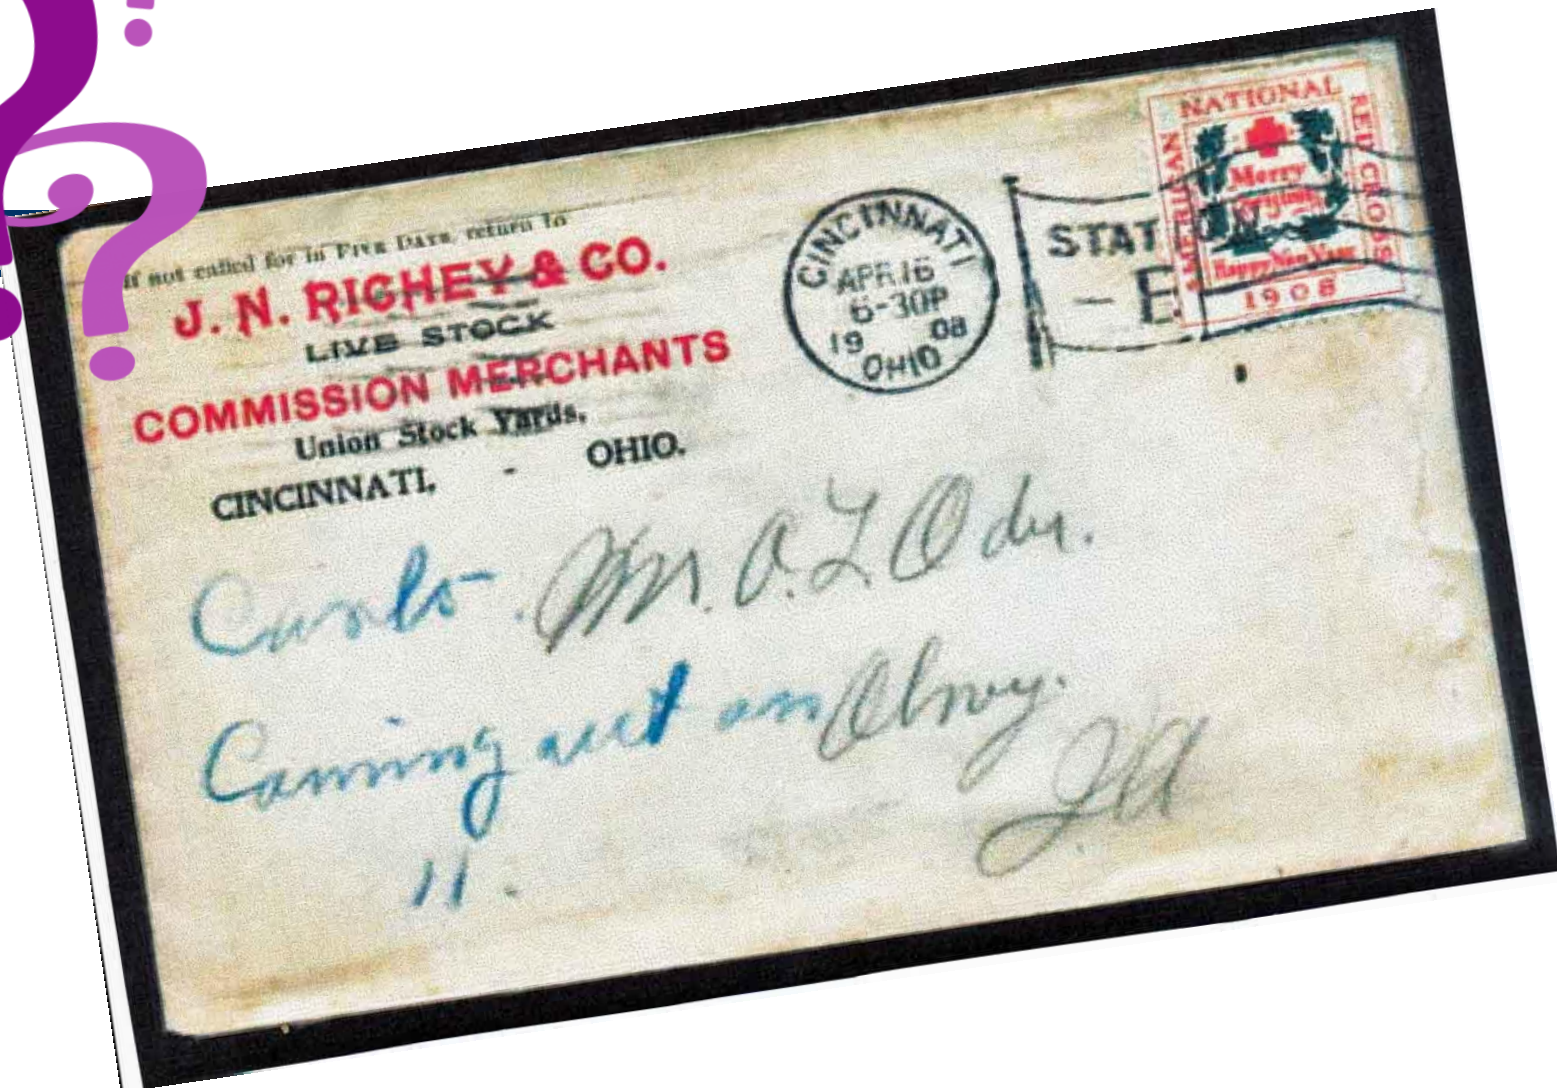 If not called for in FIVE DAYS, return to
J. N. RICHEY & CO.
LIVE STOCK
COMMISSION MERCHANTS
Union Stock Yards,
CINCINNATI, - OHIO.
CINCINNATI
APR 16
6-30P
19 08
OHIO
STATION
- E
AMERICAN NATIONAL RED CROSS
Merry
Christmas
Happy New Year
1908
Mr. O. L. Oder.
Coming out on
11.